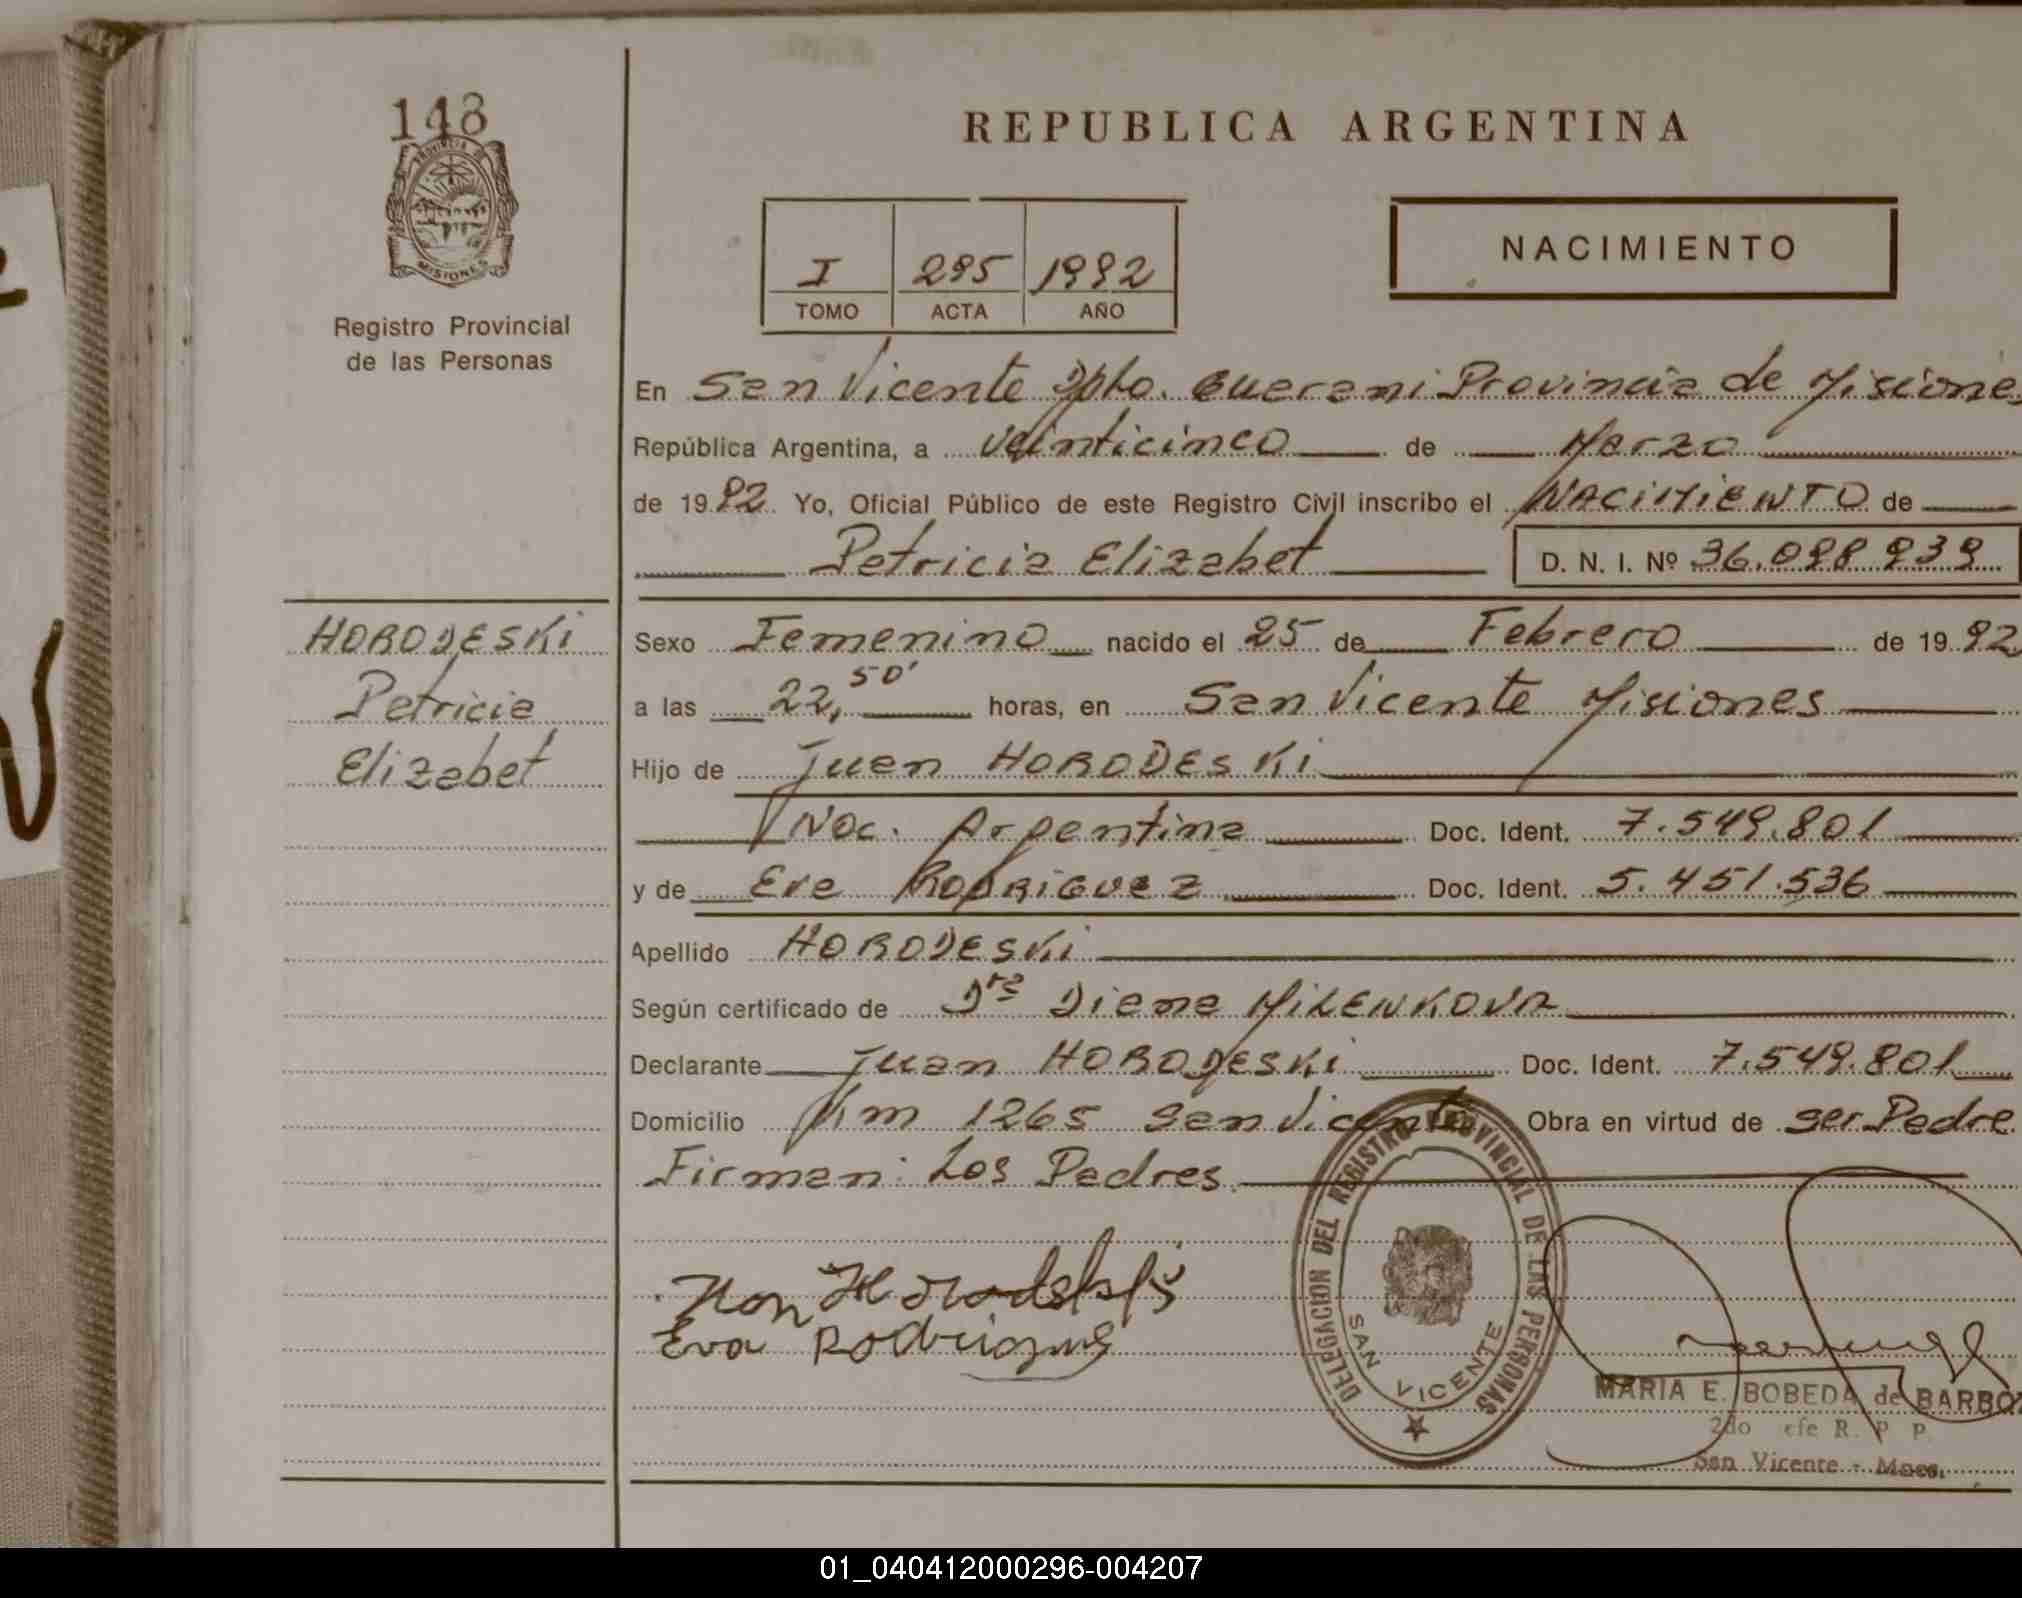 148
PROVINCIA DE
MISIONES
Registro Provincial
de las Personas
HORODESKI
Patricia
Elizabet
REPUBLICA ARGENTINA
I 295 1992
TOMO ACTA AÑO
NACIMIENTO
En San Vicente Dpto. Guarani Provincia de Misiones
República Argentina, a veinticinco de Marzo
de 1992 Yo, Oficial Público de este Registro Civil inscribo el NACIMIENTO de
Patricia Elizabet D. N. I. Nº 36.098.939
Sexo Femenino nacido el 25 de Febrero de 1992
a las 22,50' horas, en San Vicente Misiones
Hijo de Juan HORODESKI
Nac. Argentina Doc. Ident. 7.549.801
y de Eva RODRIGUEZ Doc. Ident. 5.451.536
Apellido HORODESKI
Según certificado de Dra Diana MILENKOVA
Declarante Juan HORODESKI Doc. Ident. 7.549.801
Domicilio Km 1265 San Vicente Obra en virtud de ser Padre
Firman: Los Padres.
Eva Rodriguez
DELEGACION DEL REGISTRO PROVINCIAL DE LAS PERSONAS
SAN VICENTE
MARIA E. BOBEDA de BARBOZ
2do efe R. P P.
San Vicente - Mnes.
01_040412000296-004207